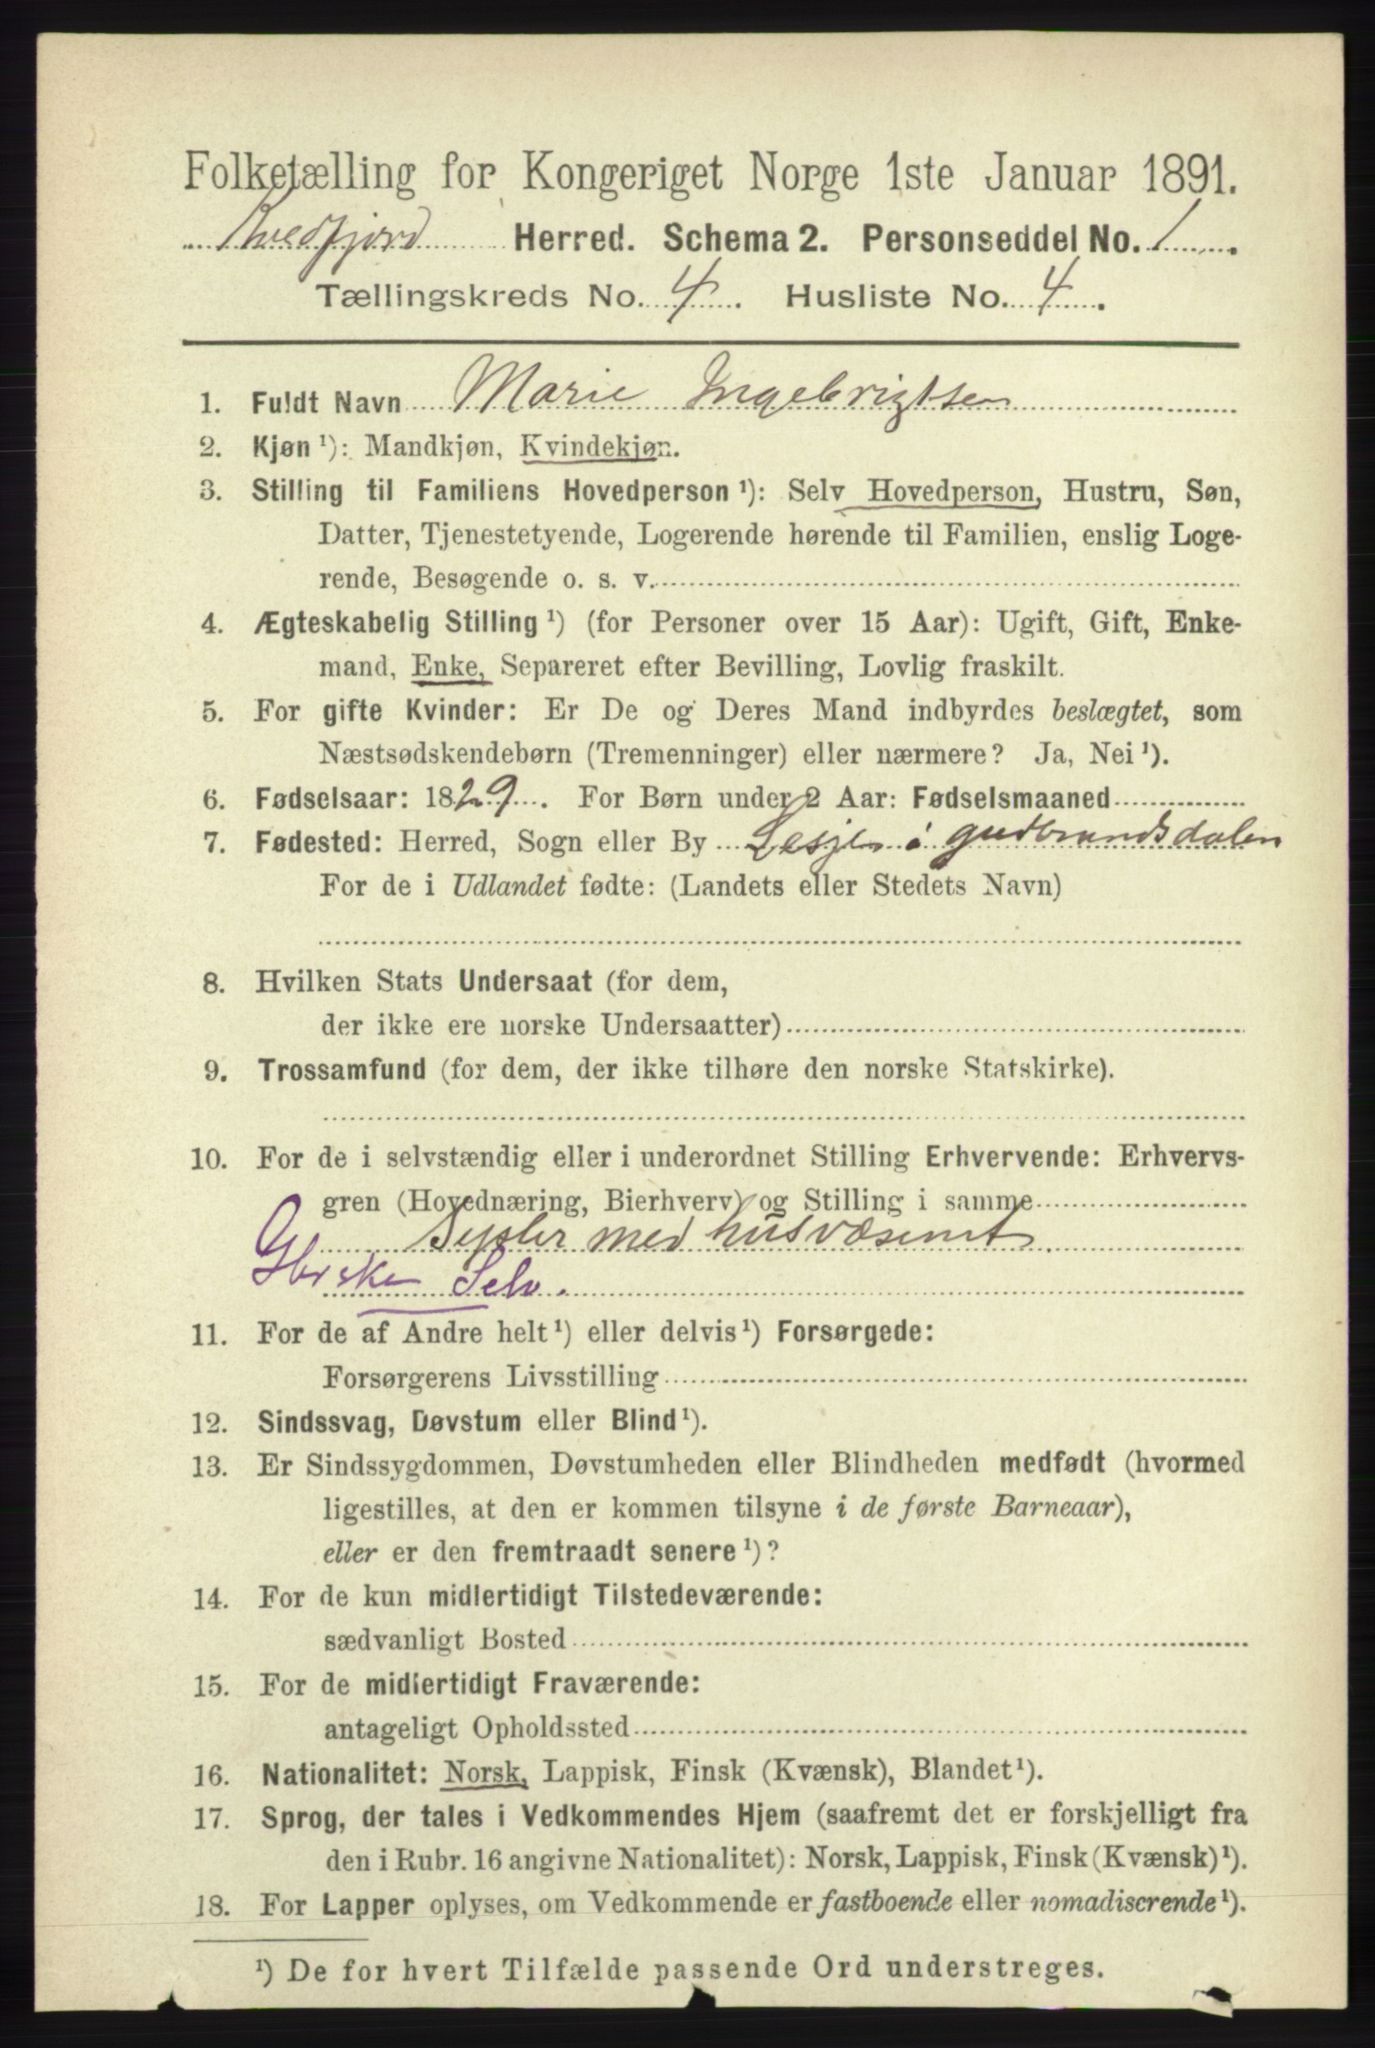 Folketælling for Kongeriget Norge 1ste Januar 1891.
Kvedfjord Herred. Schema 2. Personseddel No. 1.
Tællingskreds No. 4. Husliste No. 4.
1. Fuldt Navn Marie Ingebrigtsen
2. Kjøn ¹): Mandkjøn, Kvindekjøn.
3. Stilling til Familiens Hovedperson ¹): Selv Hovedperson, Hustru, Søn,
Datter, Tjenestetyende, Logerende hørende til Familien, enslig Loge-
rende, Besøgende o. s. v.
4. Ægteskabelig Stilling ¹) (for Personer over 15 Aar): Ugift, Gift, Enke-
mand, Enke, Separeret efter Bevilling, Lovlig fraskilt.
5. For gifte Kvinder: Er De og Deres Mand indbyrdes beslægtet, som
Næstsødskendebørn (Tremenninger) eller nærmere? Ja, Nei ¹).
6. Fødselsaar: 1829. For Børn under 2 Aar: Fødselsmaaned
7. Fødested: Herred, Sogn eller By Lesje i gudbrandsdalen
For de i Udlandet fødte: (Landets eller Stedets Navn)
8. Hvilken Stats Undersaat (for dem,
der ikke ere norske Undersaatter)
9. Trossamfund (for dem, der ikke tilhøre den norske Statskirke).
10. For de i selvstændig eller i underordnet Stilling Erhvervende: Erhvervs-
gren (Hovednæring, Bierhverv) og Stilling i samme
Sysler med husvæsent
Selv.
11. For de af Andre helt ¹) eller delvis ¹) Forsørgede:
Forsørgerens Livsstilling
12. Sindssvag, Døvstum eller Blind ¹).
13. Er Sindssygdommen, Døvstumheden eller Blindheden medfødt (hvormed
ligestilles, at den er kommen tilsyne i de første Barneaar),
eller er den fremtraadt senere ¹)?
14. For de kun midlertidigt Tilstedeværende:
sædvanligt Bosted
15. For de midlertidigt Fraværende:
antageligt Opholdssted
16. Nationalitet: Norsk, Lappisk, Finsk (Kvænsk), Blandet ¹).
17. Sprog, der tales i Vedkommendes Hjem (saafremt det er forskjelligt fra
den i Rubr. 16 angivne Nationalitet): Norsk, Lappisk, Finsk (Kvænsk) ¹).
18. For Lapper oplyses, om Vedkommende er fastboende eller nomadiserende ¹).
¹) De for hvert Tilfælde passende Ord understreges.